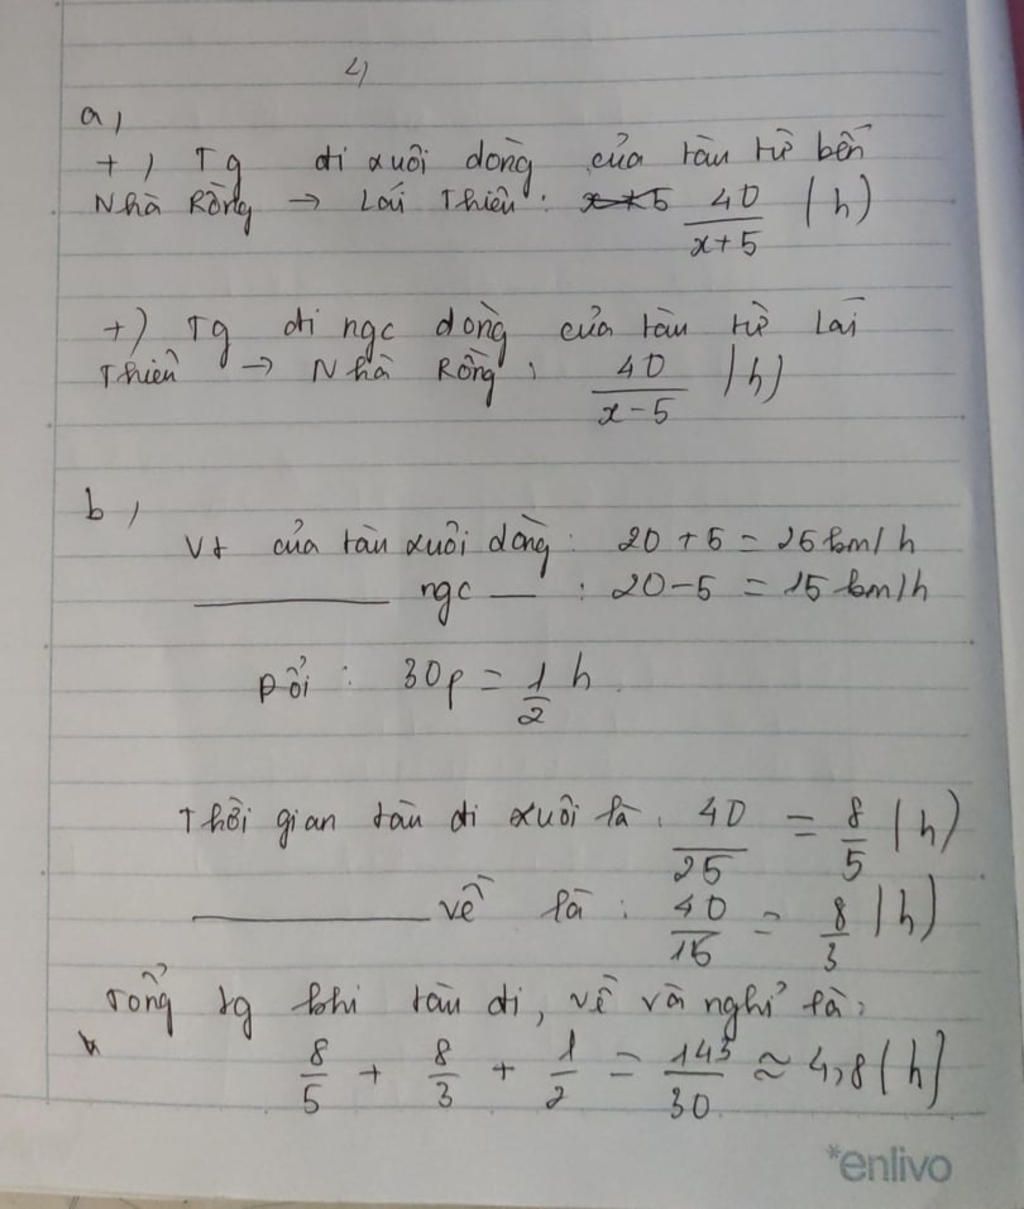 4)
a,
+) Tg đi xuôi dòng của tàu từ bến
Nhà Rồng → Lái Thiêu: 40/(x+5) (h)
+) Tg đi ngc dòng của tàu từ Lái
Thiêu → Nhà Rồng: 40/(x-5) (h)
b,
Vt của tàu xuôi dòng: 20 + 5 = 25 km/h
ngc : 20-5 = 15 km/h
Đổi: 30p = 1/2 h
Thời gian tàu đi xuôi là: 40/25 = 8/5 (h)
về là: 40/15 = 8/3 (h)
Tổng tg khi tàu đi, về và nghỉ là:
8/5 + 8/3 + 1/2 = 143/30 ≈ 4,8 (h)
*enlivo